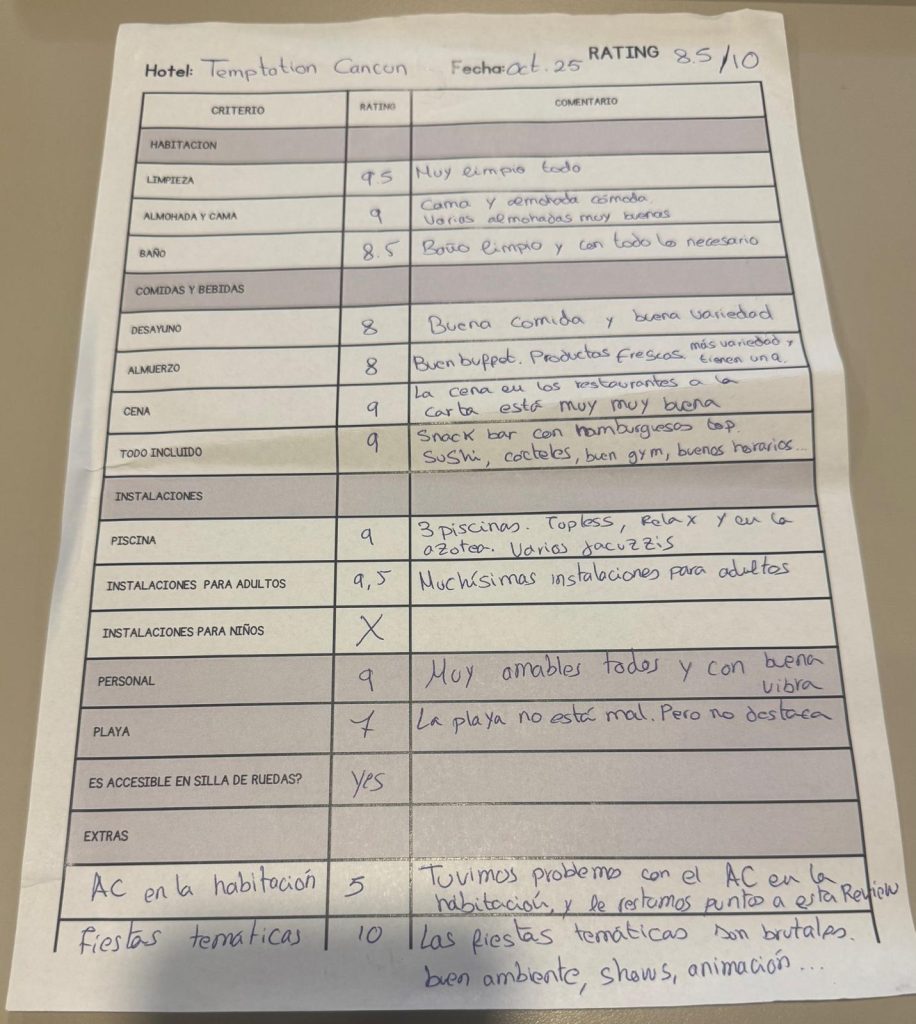 Hotel: Temptation Cancun Fecha: Oct. 25 RATING 8.5/10
CRITERIO RATING COMENTARIO
HABITACION
LIMPIEZA 9.5 Muy limpio todo
ALMOHADA Y CAMA 9 Cama y almohada cómoda
Varias almohadas muy buenas
BAÑO 8.5 Baño limpio y con todo lo necesario
COMIDAS Y BEBIDAS
DESAYUNO 8 Buena comida y buena variedad
ALMUERZO 8 Buen buffet. Productos frescos. más variedad y
tienen una.
CENA 9 La cena en los restaurantes a la
carta está muy muy buena
TODO INCLUIDO 9 Snack bar con hamburguesas top.
Sushi, cocteles, buen gym, buenos horarios...
INSTALACIONES
PISCINA 9 3 piscinas. Topless, Relax y en la
azotea. Varios jacuzzis
INSTALACIONES PARA ADULTOS 9,5 Muchísimas instalaciones para adultos
INSTALACIONES PARA NIÑOS X
PERSONAL 9 Muy amables todos y con buena
vibra
PLAYA 7 La playa no está mal. Pero no destaca
ES ACCESIBLE EN SILLA DE RUEDAS? yes
EXTRAS
AC en la habitación 5 Tuvimos problema con el AC en la
habitación, y le restamos puntos a esta Review
Fiestas temáticas 10 Las fiestas temáticas son brutales.
buen ambiente, shows, animación...